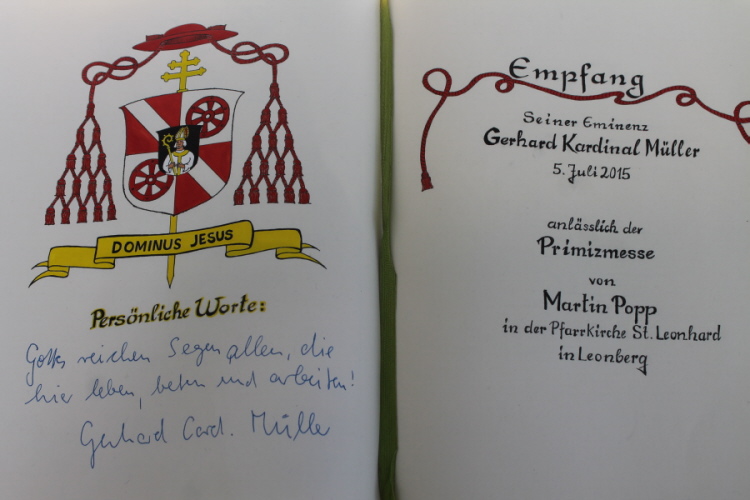 DOMINUS JESUS
Persönliche Worte:
Gottes reichen Segen allen, die
hier leben, beten und arbeiten!
Gerhard Card. Müller
Empfang
Seiner Eminenz
Gerhard Kardinal Müller
5. Juli 2015
anlässlich der
Primizmesse
von
Martin Popp
in der Pfarrkirche St. Leonhard
in Leonberg